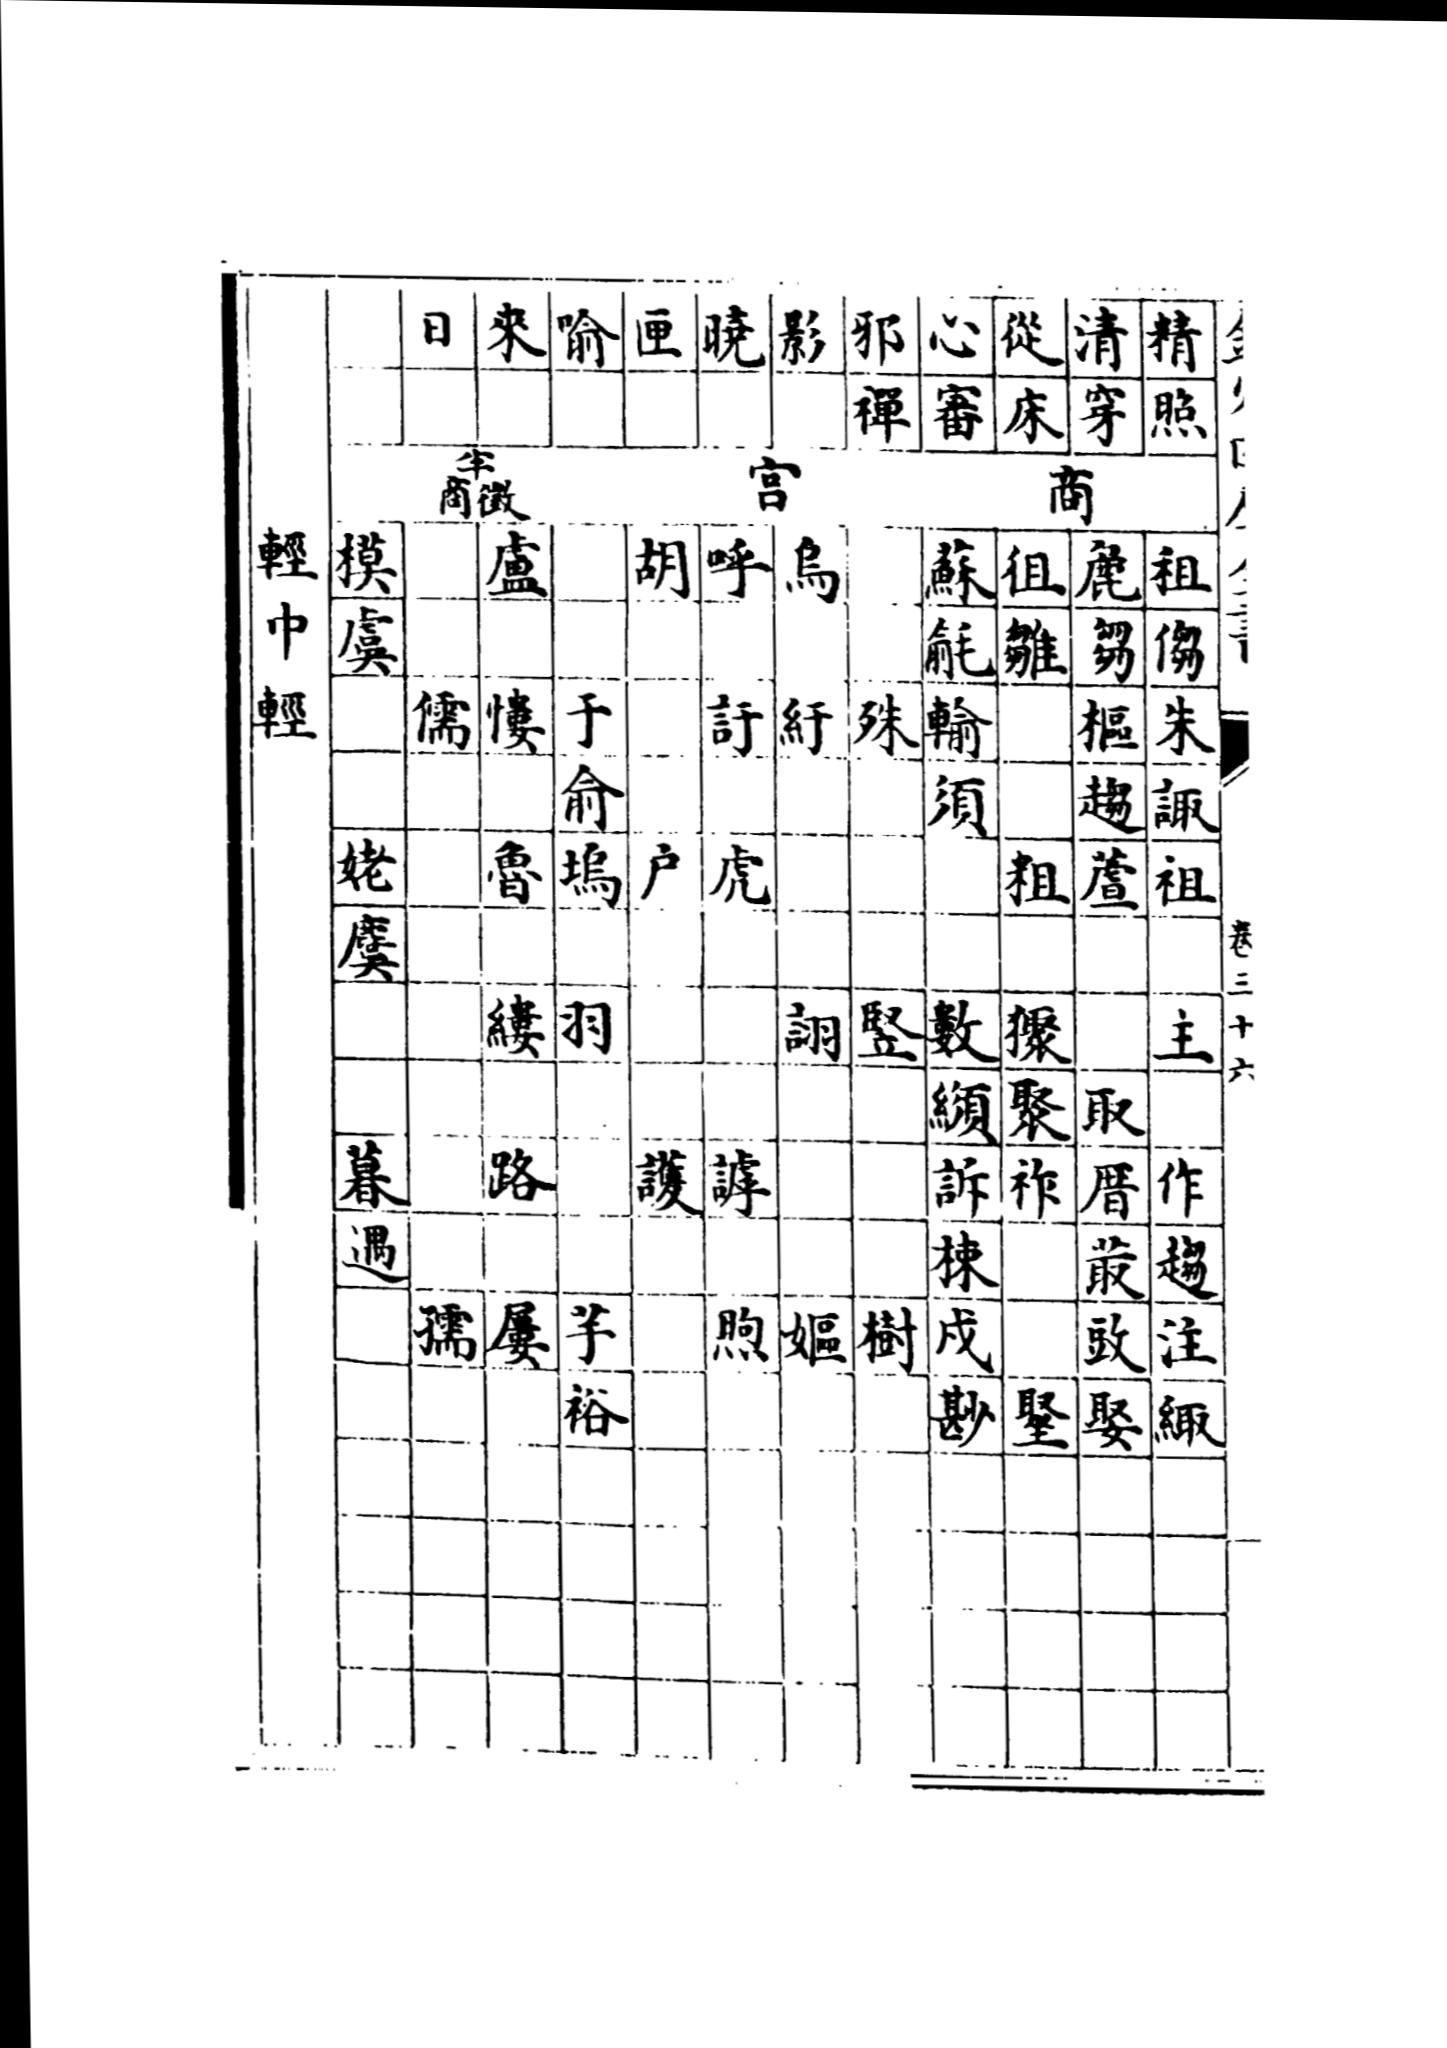 卷三十六
精照商租㑳朱諏祖主作趨注緅
清穿麄芻樞趨蘆取厝菆娶
從床徂雛粗㺒聚祚堅
心審蘇毹輸須數纐訴揀戍尠
邪禪殊豎樹
影宮烏紆詡嫗
曉呼訏虎謼煦
匣胡戶護
喻于俞塢羽芋裕
來半徵盧慺魯縷路屢
日商儒孺
模虞姥麌暮遇
輕中輕